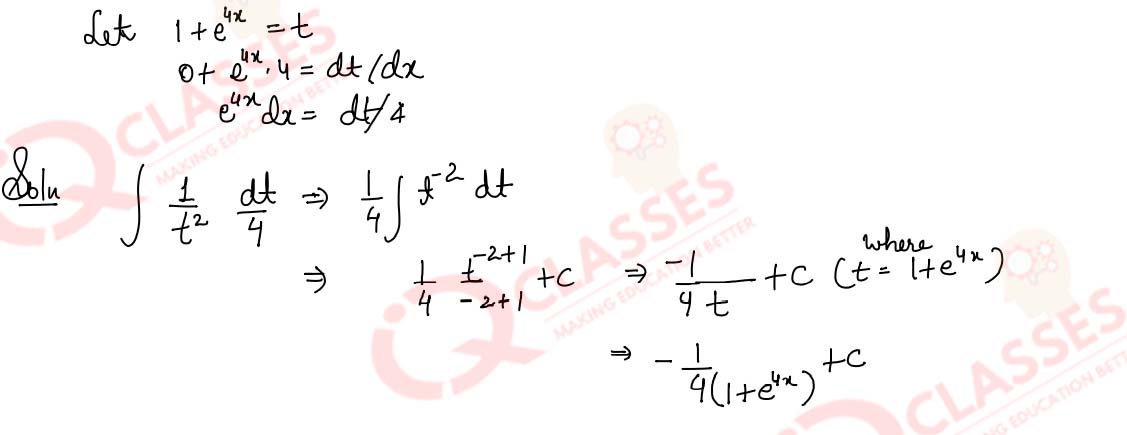 Let 1+e^{4x} = t
0+ e^{4x}.4 = dt/dx
e^{4x}dx = dt/4
Soln ∫ 1/t² dt/4 ⇒ 1/4 ∫ t^{-2} dt
⇒ 1/4 t^{-2+1}/-2+1 +C ⇒ -1/4t +C (where t = 1+e^{4x})
⇒ -1/4(1+e^{4x}) +C
iQ CLASSES
MAKING EDUCATION BETTER
iQ CLASSES
MAKING EDUCATION BETTER
CLASSES
MAKING EDUCATION BETTER